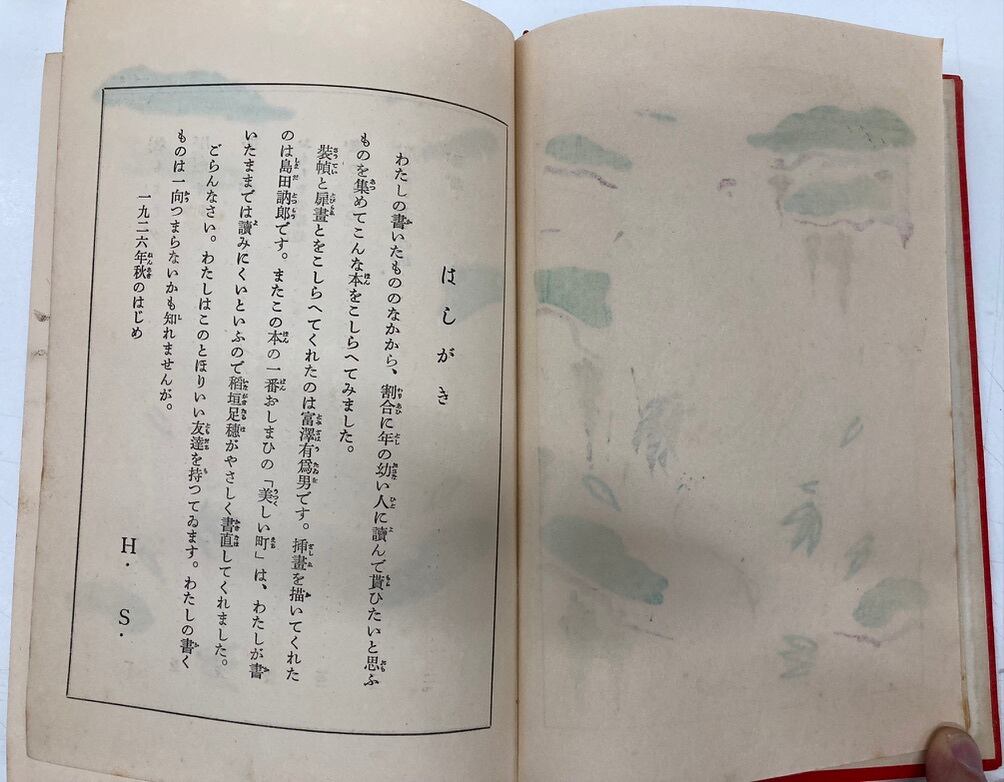 はしがき
わたしの書いたもののなかから、割合に年の幼い人に讀んで貰ひたいと思ふ
ものを集めてこんな本をこしらへてみました。
裝幀と扉畫とをこしらへてくれたのは富澤有爲男です。挿畫を描いてくれた
のは島田訥郎です。またこの本の一番おしまひの「美しい町」は、わたしが書
いたままでは讀みにくいといふので稻垣足穗がやさしく書直してくれました。
ごらんなさい。わたしはこのとほりいい友達を持つてゐます。わたしの書く
ものは一向つまらないかも知れませんが。
一九二六年秋のはじめ
H. S.